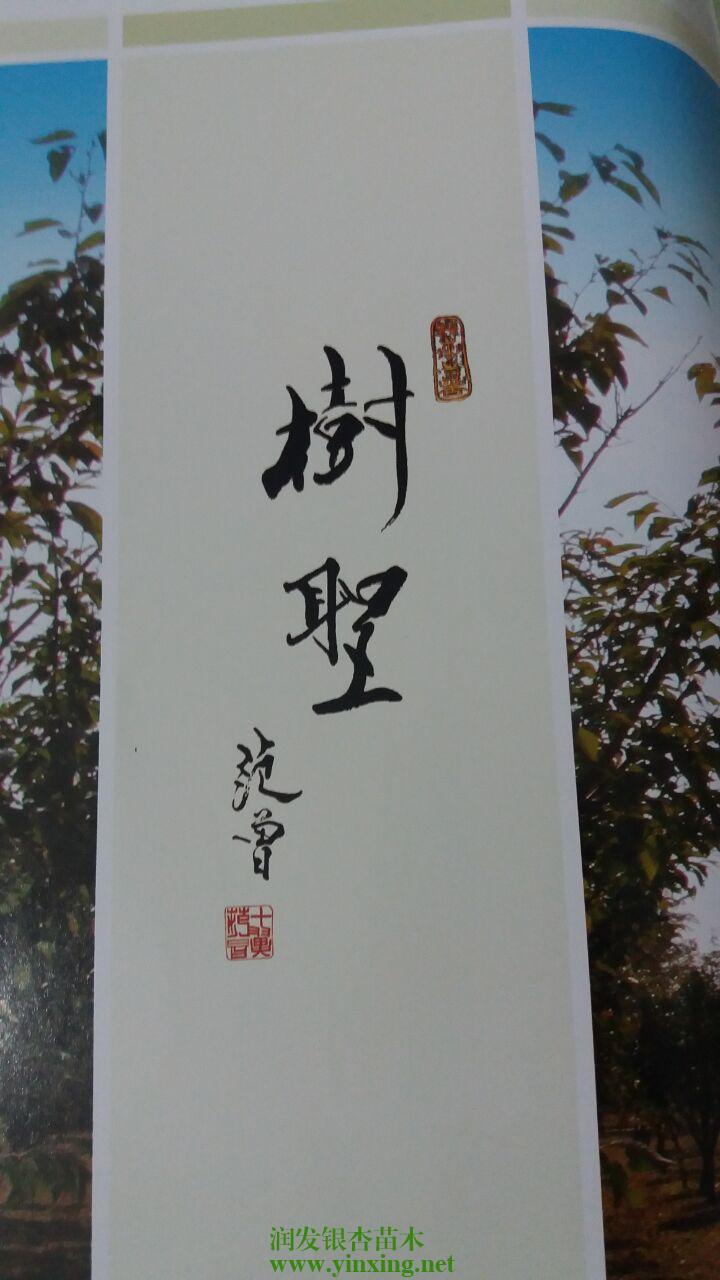 樹
聖
范
曾
润发银杏苗木
www.yinxing.net